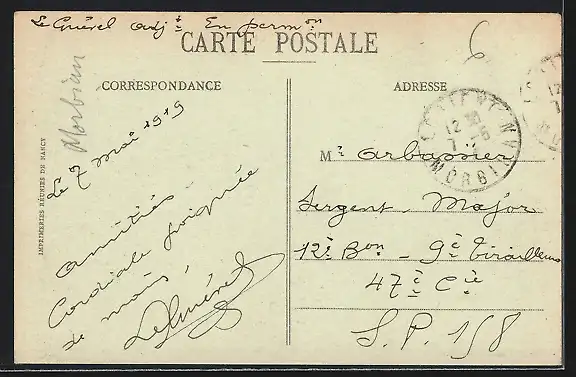 Le Guével adjt En permon
CARTE POSTALE
6
Morbihan
CORRESPONDANCE
ADRESSE
Le 7 Mai 1919
amitiés
Cordiale poignée
de main,
LeGuével
IMPRIMERIES RÉUNIES DE NANCY
Mr Arbassier
Sergent Major
12è Bon - 9è Tirailleurs
47è Cie
S.P. 158
12 30
7 -5
MORBIHAN